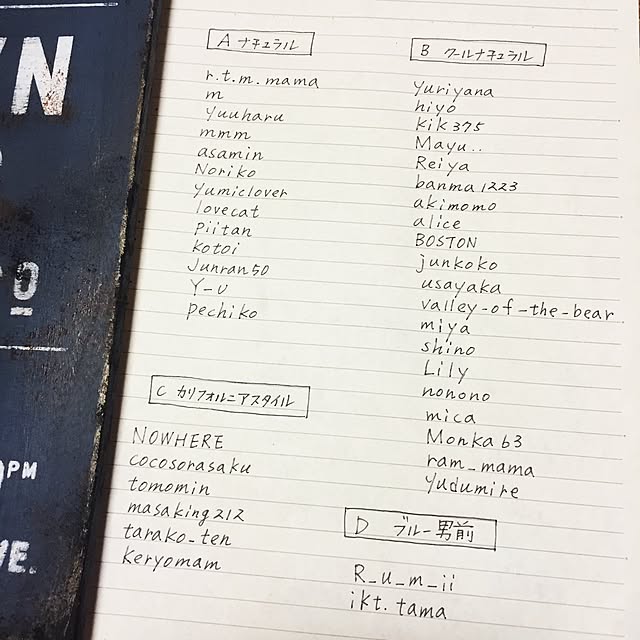 A ナチュラル
r.t.m.mama
m
Yuuharu
mmm
asamin
Noriko
Yumiclover
lovecat
piitan
kotoi
Junran50
Y-U
pechiko
B クールナチュラル
Yuriyana
hiyo
kik375
Mayu..
Reiya
banma1223
akimomo
alice
BOSTON
junkoko
usayaka
valley-of-the-bear
miya
shino
Lily
nonono
mica
Monka63
ram_mama
Yudumire
C カリフォルニアスタイル
NOWHERE
cocosorasaku
tomomin
masaking212
tarako_ten
keryomam
D ブルー男前
R_u_m_ii
ikt.tama
YN
O
PM
VE.